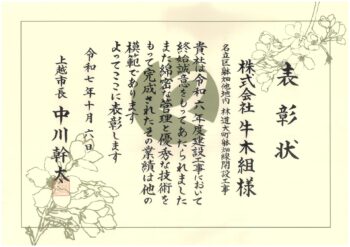 表彰状
名立区躰畑他地内 林道大町躰畑線開設工事
株式会社 牛木組様
貴社は令和六年度建設工事において
終始誠意をもってあたられました
また綿密な管理と優秀な技術を
もって完成されたその業績は他の
模範であります
よってここに表彰します
令和七年十月六日
上越市長 中川幹太